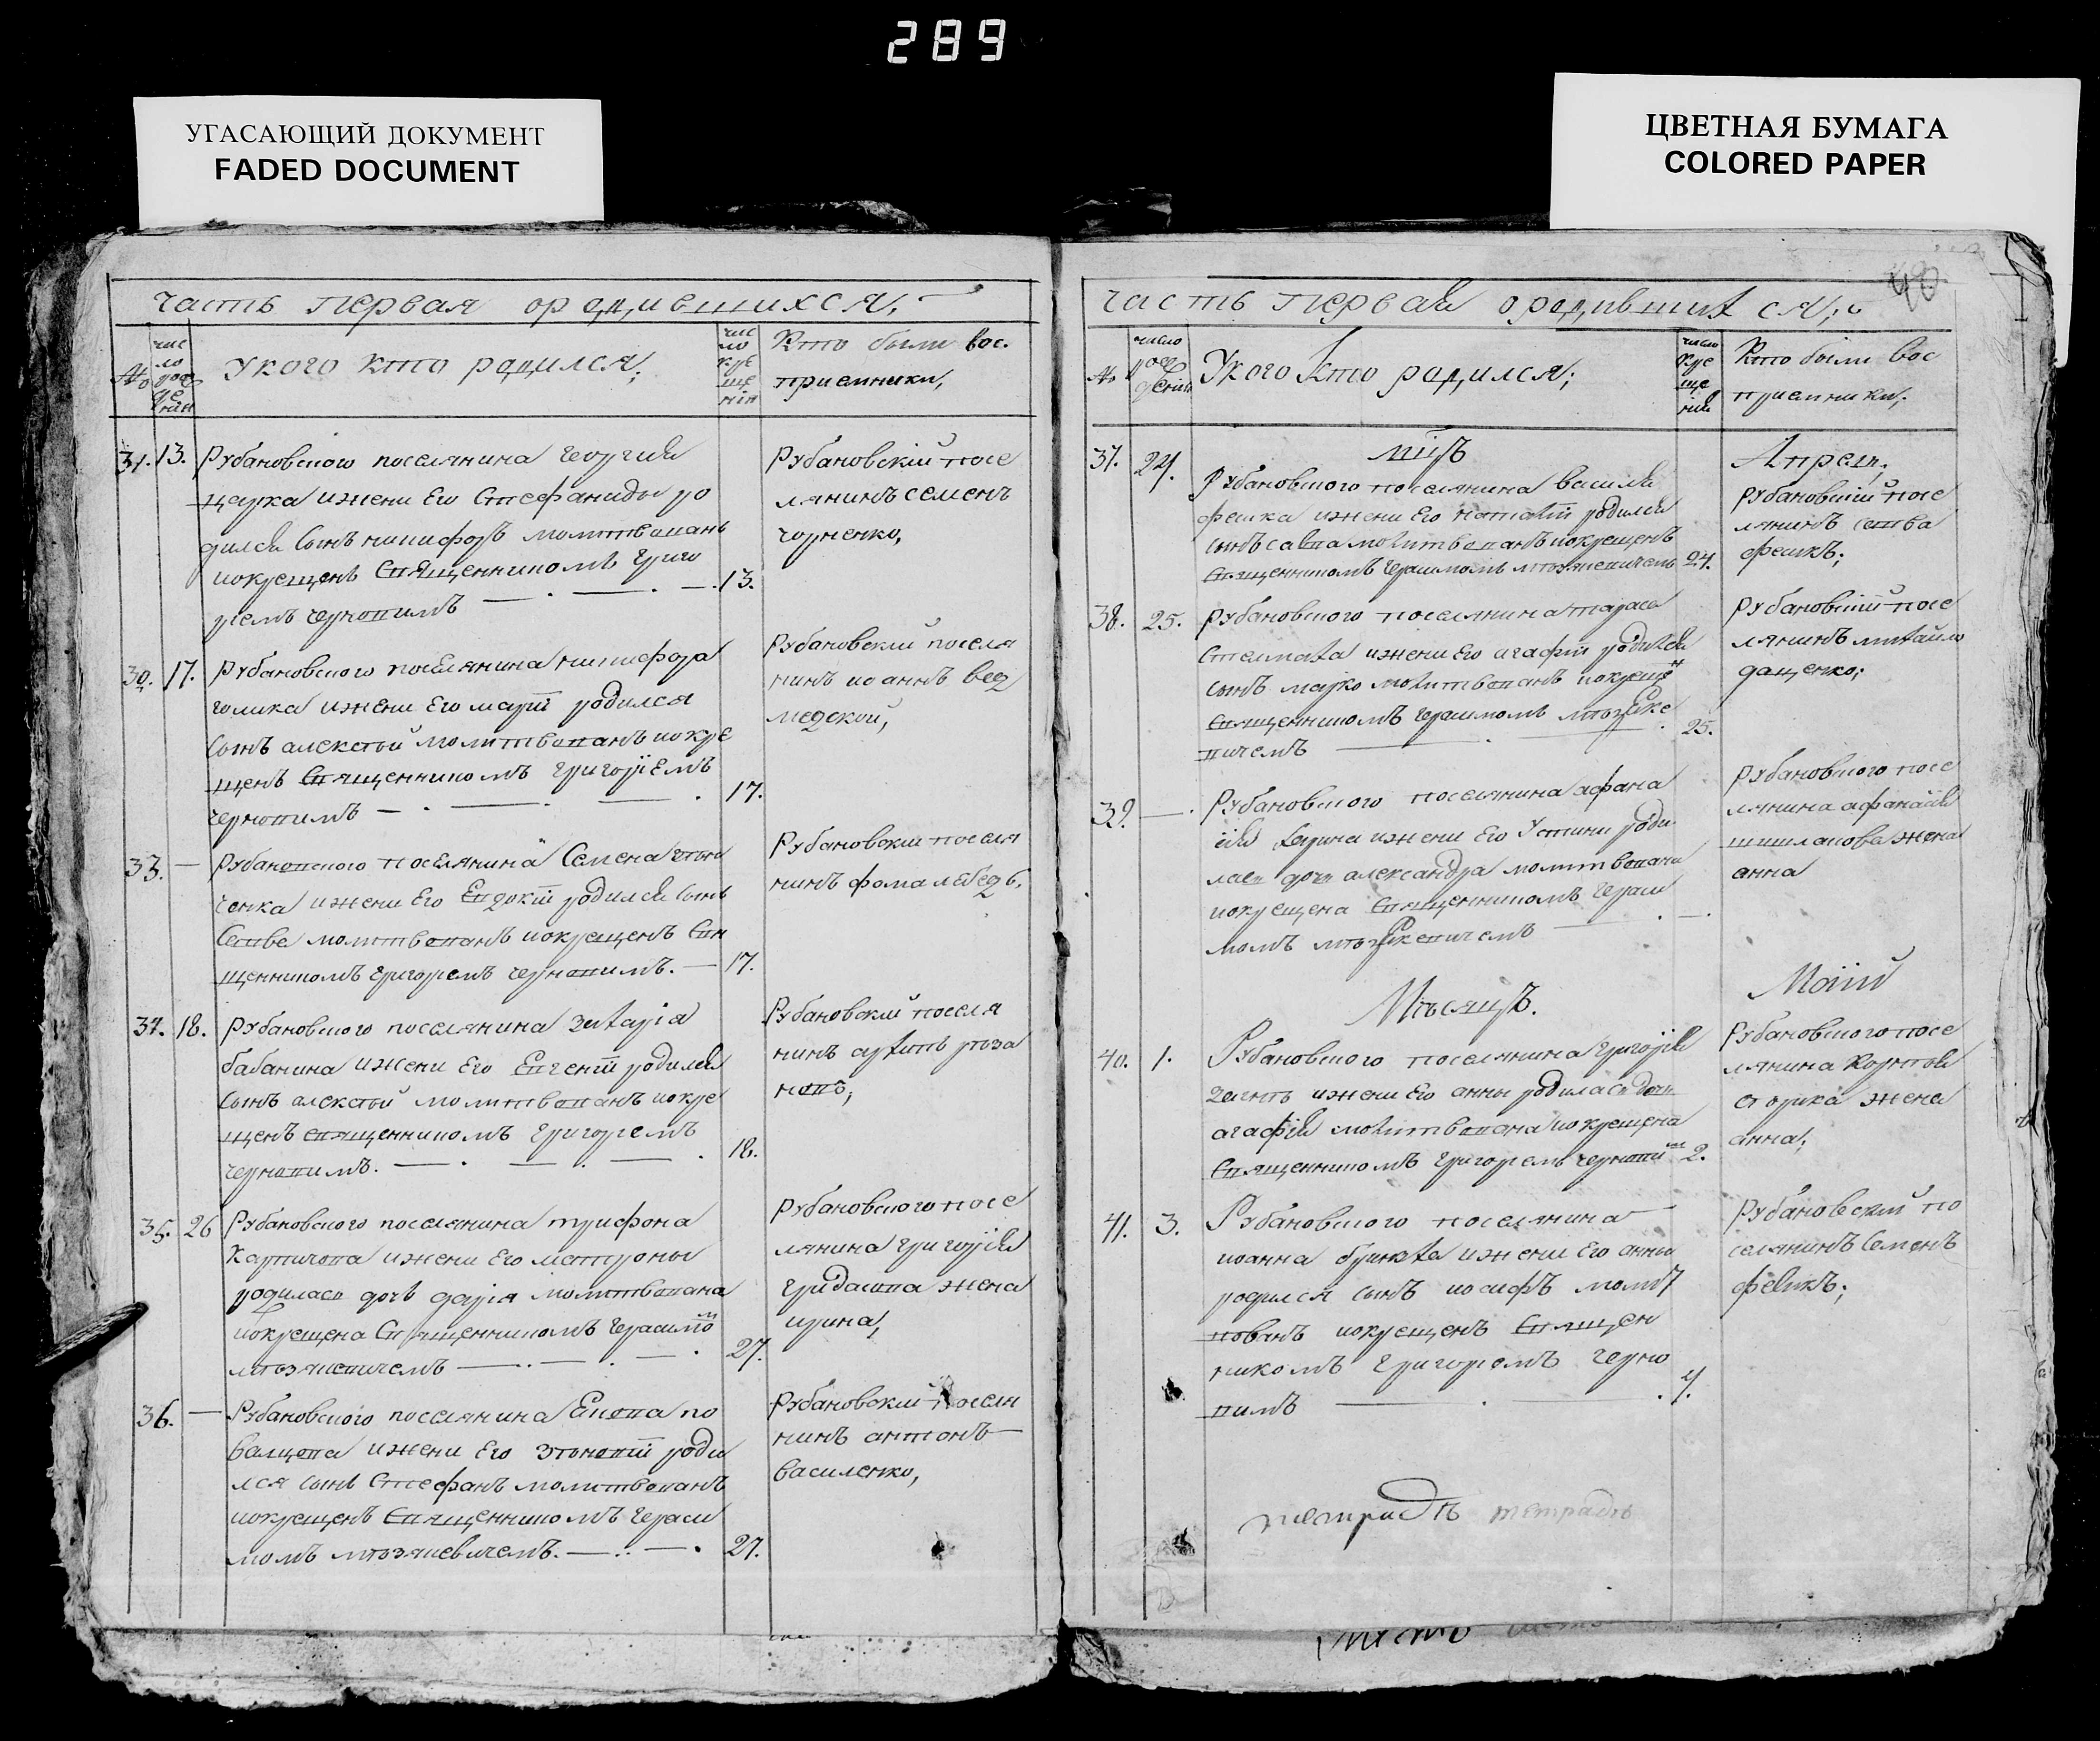 289
УГАСАЮЩИЙ ДОКУМЕНТ
FADED DOCUMENT
ЦВЕТНАЯ БУМАГА
COLORED PAPER
часть первая ородившихся,
№
чис
ло
рож
де
нія
У кого кто родился;
чис
ло
кре
ще
нія
Кто были вос.
приемники,
31. 13. Рубановского поселянина Георгия
царка и жени Его Стефаниды ро
дился сынъ никифоръ молитвованъ
и окрещенъ Священникомъ Григо
ріемъ черновимъ 13.
Рубановскій посе
лянинъ семенъ
чорненко,
32. 17. Рубановского поселянина никифора
голика и жени Его марѣи родился
сынъ алексѣй молитвованъ и окре
щенъ Священникомъ григоріемъ
черновимъ 17.
Рубановскій поселя
нинъ иоаннъ вед
медской,
33. — Рубановского поселянина Семена
ченка и жени Его Евдокіи родился сынъ
Савве молитвованъ и окрещенъ Свя
щенникомъ григоріемъ черновимъ. — 17.
Рубановскій поселя
нинъ фома лебедь,
34. 18. Рубановского поселянина захарія
бабанина и жени Его Евгеніи родился
сынъ алексѣй молитвованъ и окре
щенъ священникомъ григоріемъ
черновимъ. 18.
Рубановскій поселя
нинъ архипъ
35. 26 Рубановского поселянина трифона
и жени Его матроны
родилась дочь дарія молитвована
и окрещена Священникомъ герасимо
27.
Рубановского посе
лянина григорія
гридасова жена
ирина,
36. — Рубановского поселянина
и жени Его зѣновіи роди
лся сынъ Стефанъ молитвованъ
и окрещенъ Священникомъ гераси
момъ 27.
Рубановскій поселя
нинъ антонъ
василенко,
40.
часть первая ородившихся;
№
число
рож
денія
У кого кто родился;
число
кре
ще
нія
Кто были вос
приемники;
мцъ Апрель;
37. 24. Рубановского поселянина василия
и жени Его наталіи родился
сынъ савва молитвованъ и окрещенъ
Священникомъ герасимомъ 24.
Рубановскій посе
лянинъ савва
38. 25. Рубановского поселянина тараса
стелмаха и жени Его агафіи родился
сынъ марко молитвованъ и окрещенъ
Священникомъ герасимомъ
вичемъ 25.
Рубановскій посе
лянинъ михайло
даценко;
39. — Рубановского поселянина афана
сія и жени Его Устини роди
лась дочь александра молитвована
и окрещена Священникомъ гераси
момъ
Рубановского посе
лянина афанасія
шишлакова жена
анна
Мѣсяцъ. Маій
40. 1. Рубановского поселянина григорія
и жени Его анны родилась дочь
агафія молитвована и окрещена
Священникомъ григоріемъ черновимъ 2.
Рубановского посе
лянина
жена
анна;
41. 3. Рубановского поселянина
иоанна и жени Его анны
родился сынъ иосифъ молит
вованъ и окрещенъ Священ
никомъ григоріемъ черно
вимъ 4.
Рубановскій по
селянинъ Семенъ
тетрадь тетрадь